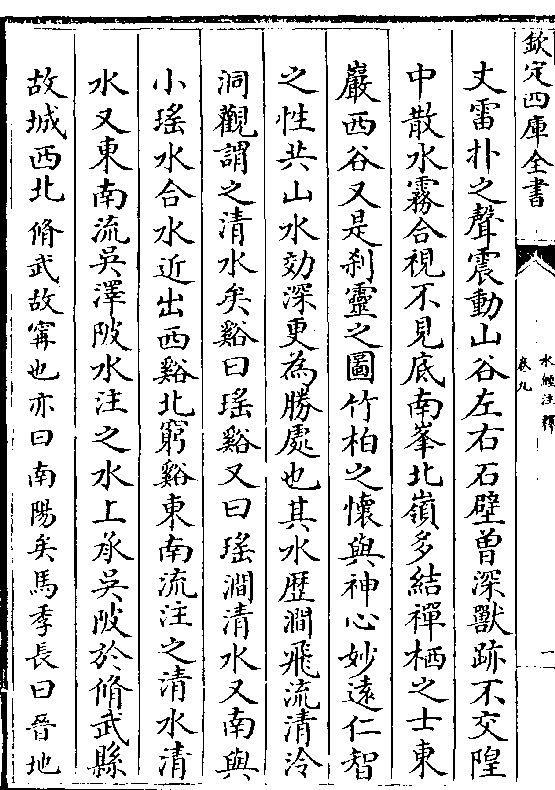 欽定四庫全書
水經注釋
卷九
一
丈雷扑之聲震動山谷左右石壁曾深獸跡不交隍
中散水霧合視不見底南峯北嶺多結禪栖之士東
巖西谷又是刹靈之圖竹柏之懷與神心妙遠仁智
之性共山水効深更為勝處也其水歴澗飛流清泠
洞觀謂之清水矣谿曰瑤谿又曰瑤澗清水又南與
小瑤水合水近出西谿北窮谿東南流注之清水清
水又東南流吳澤陂水注之水上承吳陂於脩武縣
故城西北脩武故甯也亦曰南陽矣馬季長曰晉地